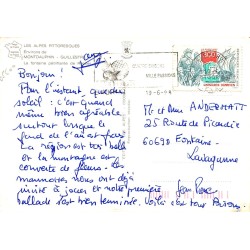 LES ALPES PITTORESQUES
MONTDAUPHIN - GUILLESTRE
Bonjour !
Pour l'instant, que du
soleil : c'est quand
même très agréable
surtout lorsque le
fond de l'air est frais
La région est très belle
et la montagne est
couverte de fleurs. Les
marmottes nous ont déjà
invité à jouer et notre première
ballade s'est bien terminée. Voilà c'est tout. Bisous
Jean Pierre
3,00
M et Mme ANDERMATT
25 Route de Picardie
60690 Fontaine-
Lavaganne